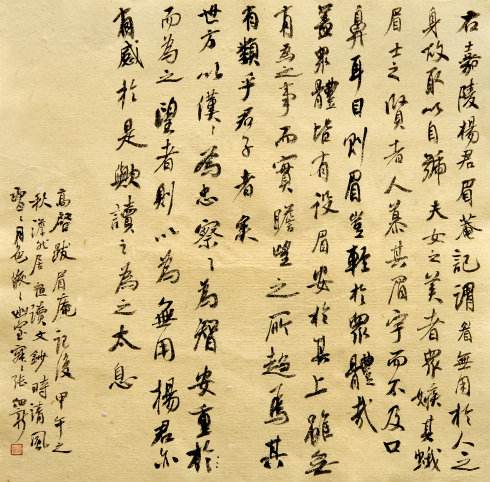 右嘉陵楊君眉菴記謂眉無用於人之
身故取以自號夫女之美者眾嫉其蛾
眉士之賢者人慕其眉宇而不及口
鼻耳目則眉豈輕於眾體哉
蓋眾體皆有設眉安於其上雖無
有為之事而實瞻望之所趨焉其
有類乎君子者矣
世方以僕〻為忠察〻為智安重於
而為之望者則以為無用楊君亦
有感於是歟讀之為之太息
高啓跋眉庵記後甲午之
秋居讀文鈔時清風
月色幽室張